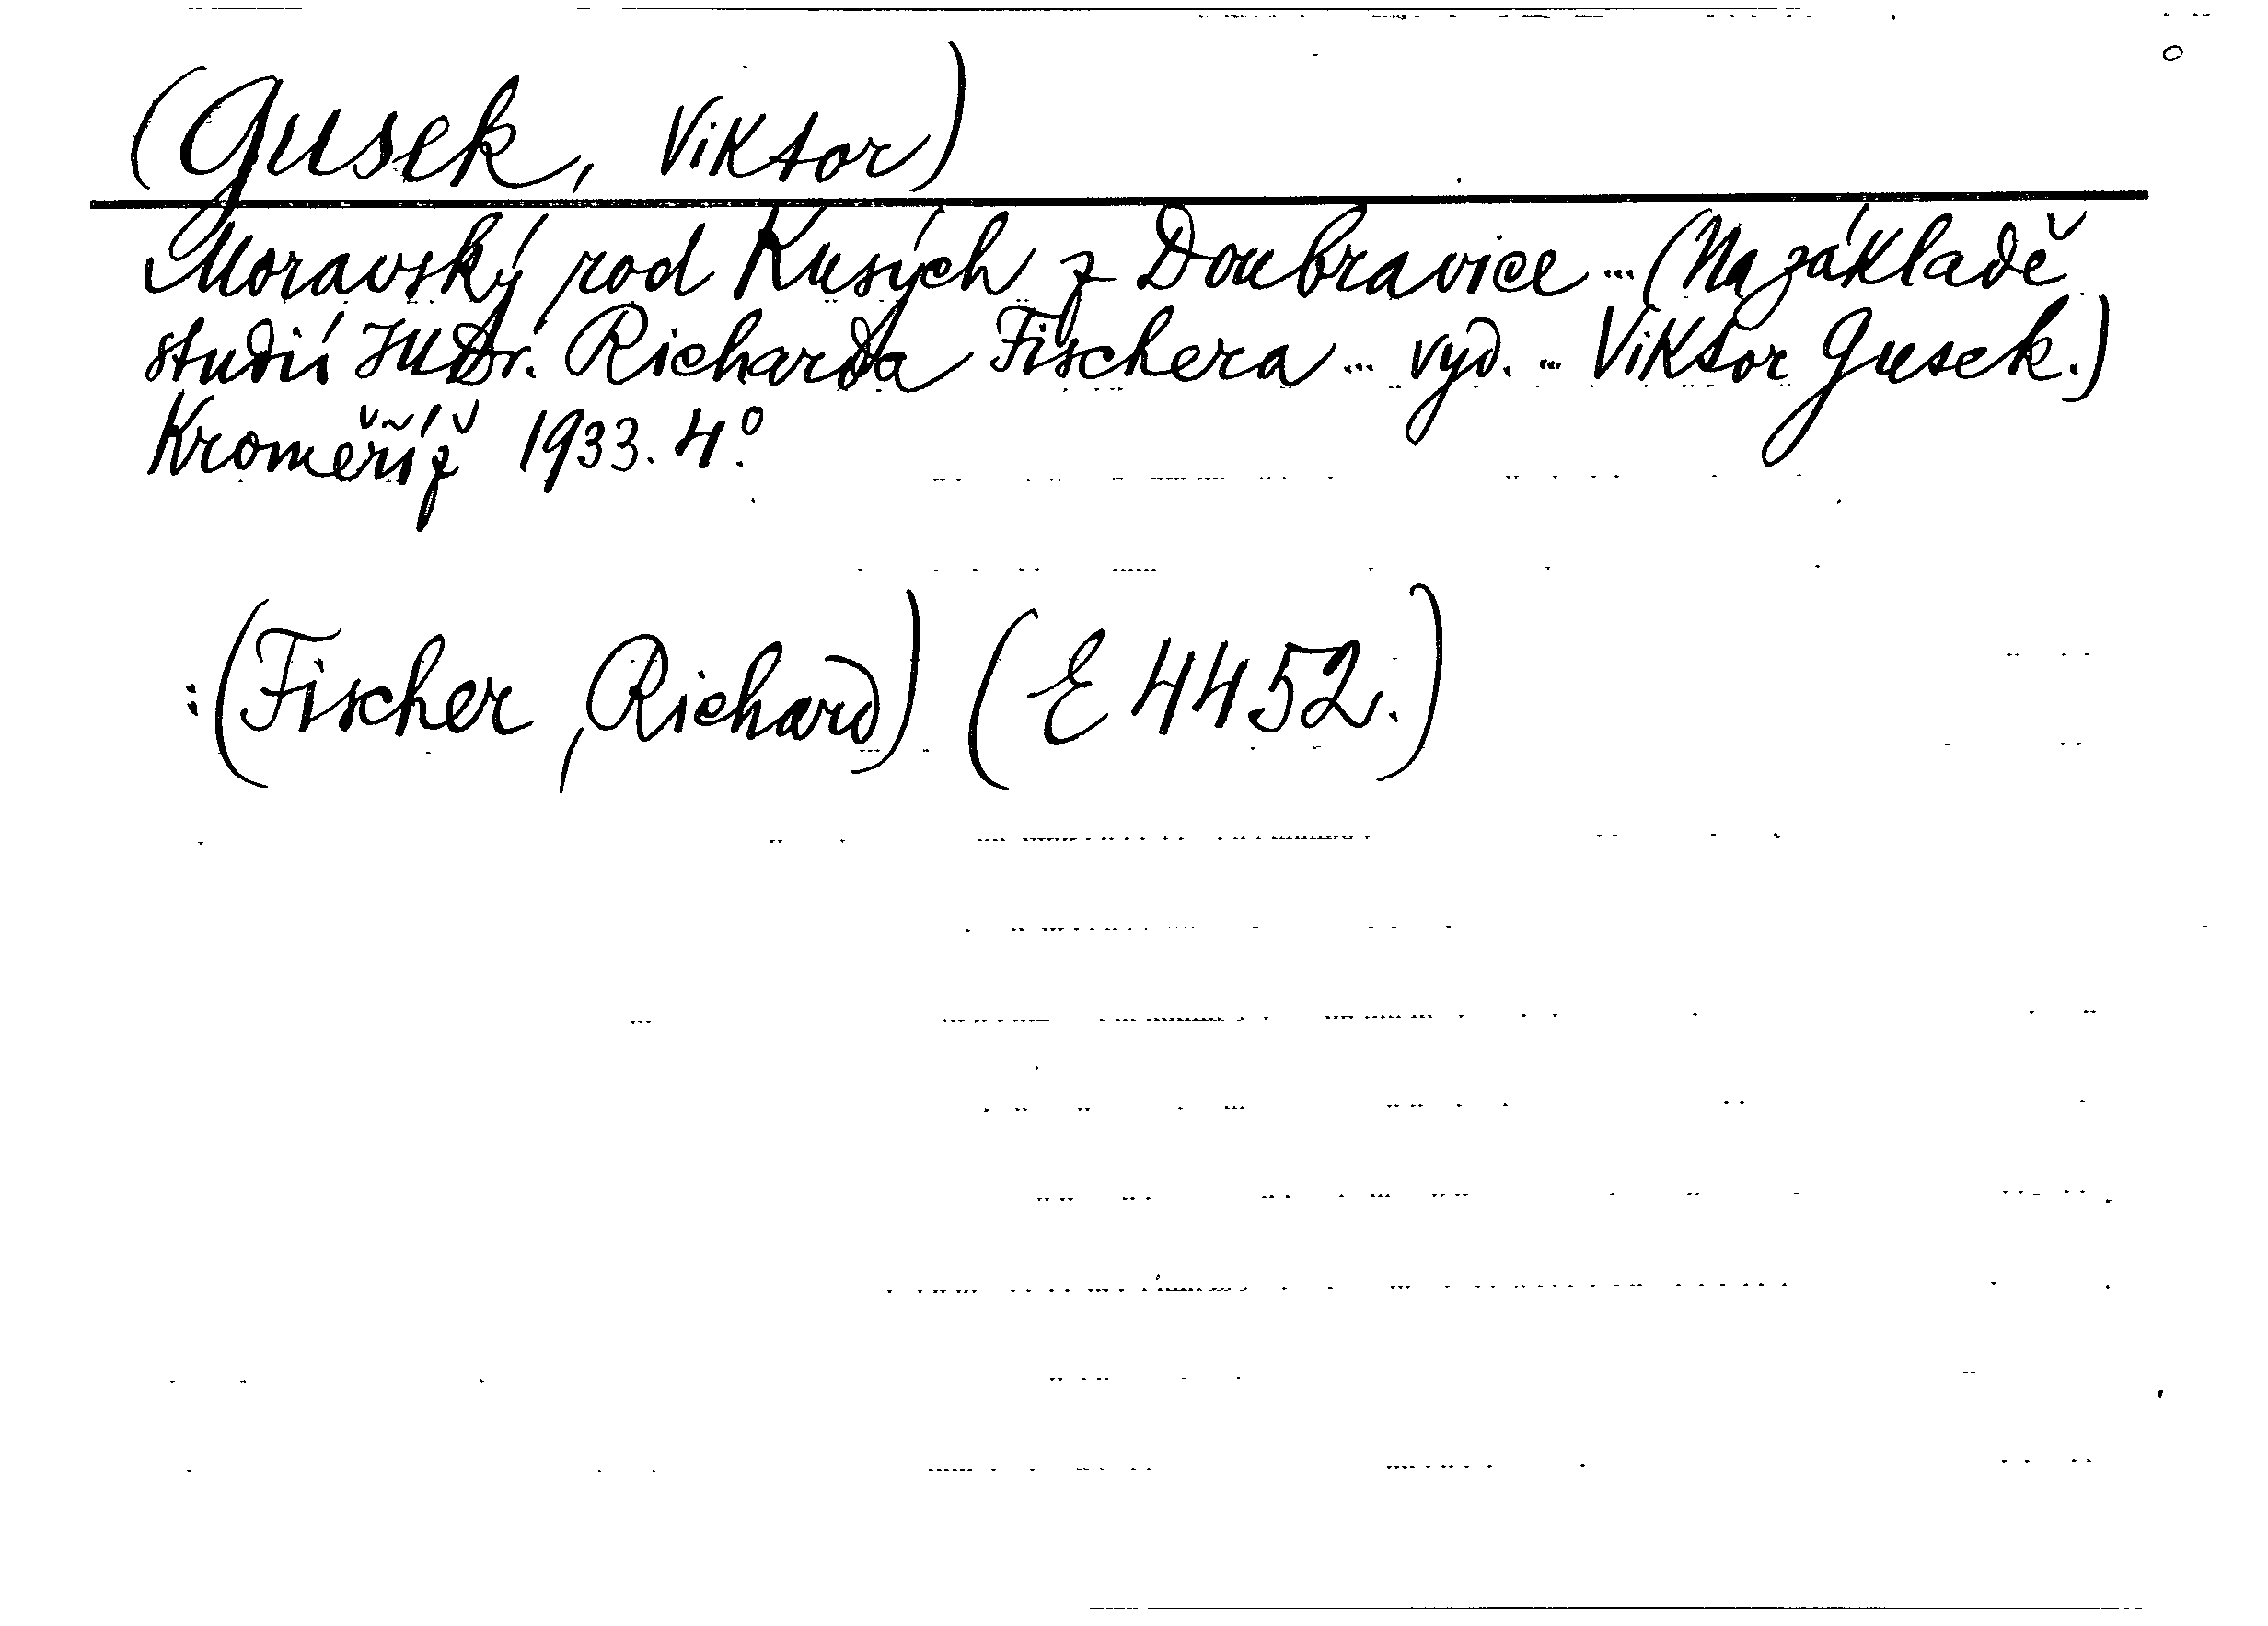 (Gusek, Viktor)
Moravský rod Kusých z Doubravice ... (Na základě
studií JUDr. Richarda Fischera ... vyd. ... Viktor Gusek.)
Kroměříž 1933. 4°.
:(Fischer, Richard) (E 4452.)